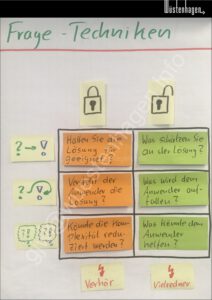 Wüstenhagen
Frage-Techniken
Halten Sie die
Lösung für
geeignet?
Was schätzen Sie
an der Lösung?
? → !
Versteht der
Anwender die
Lösung?
Was wird dem
Anwender auf-
fallen?
?
!
Könnte die Kom-
plexität redu-
ziert werden?
Was könnte dem
Anwender
helfen?
Verhör
Vielredner